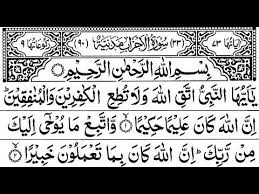 اٰیاتها ٧٣ (٣٣) سُوْرَةُ الْاَحْزَابِ مَدَنِیَّةٌ (٩٠) رکوعاتها ٩
بِسْمِ اللّٰهِ الرَّحْمٰنِ الرَّحِیْمِ
یٰۤاَیُّهَا النَّبِیُّ اتَّقِ اللّٰهَ وَلَا تُطِعِ الْكٰفِرِیْنَ وَالْمُنٰفِقِیْنَ ؕ
اِنَّ اللّٰهَ كَانَ عَلِیْمًا حَكِیْمًا ۙ﴿١﴾ وَّاتَّبِعْ مَا یُوْحٰۤی اِلَیْكَ
مِنْ رَّبِّكَ ؕ اِنَّ اللّٰهَ كَانَ بِمَا تَعْمَلُوْنَ خَبِیْرًا ۙ﴿٢﴾